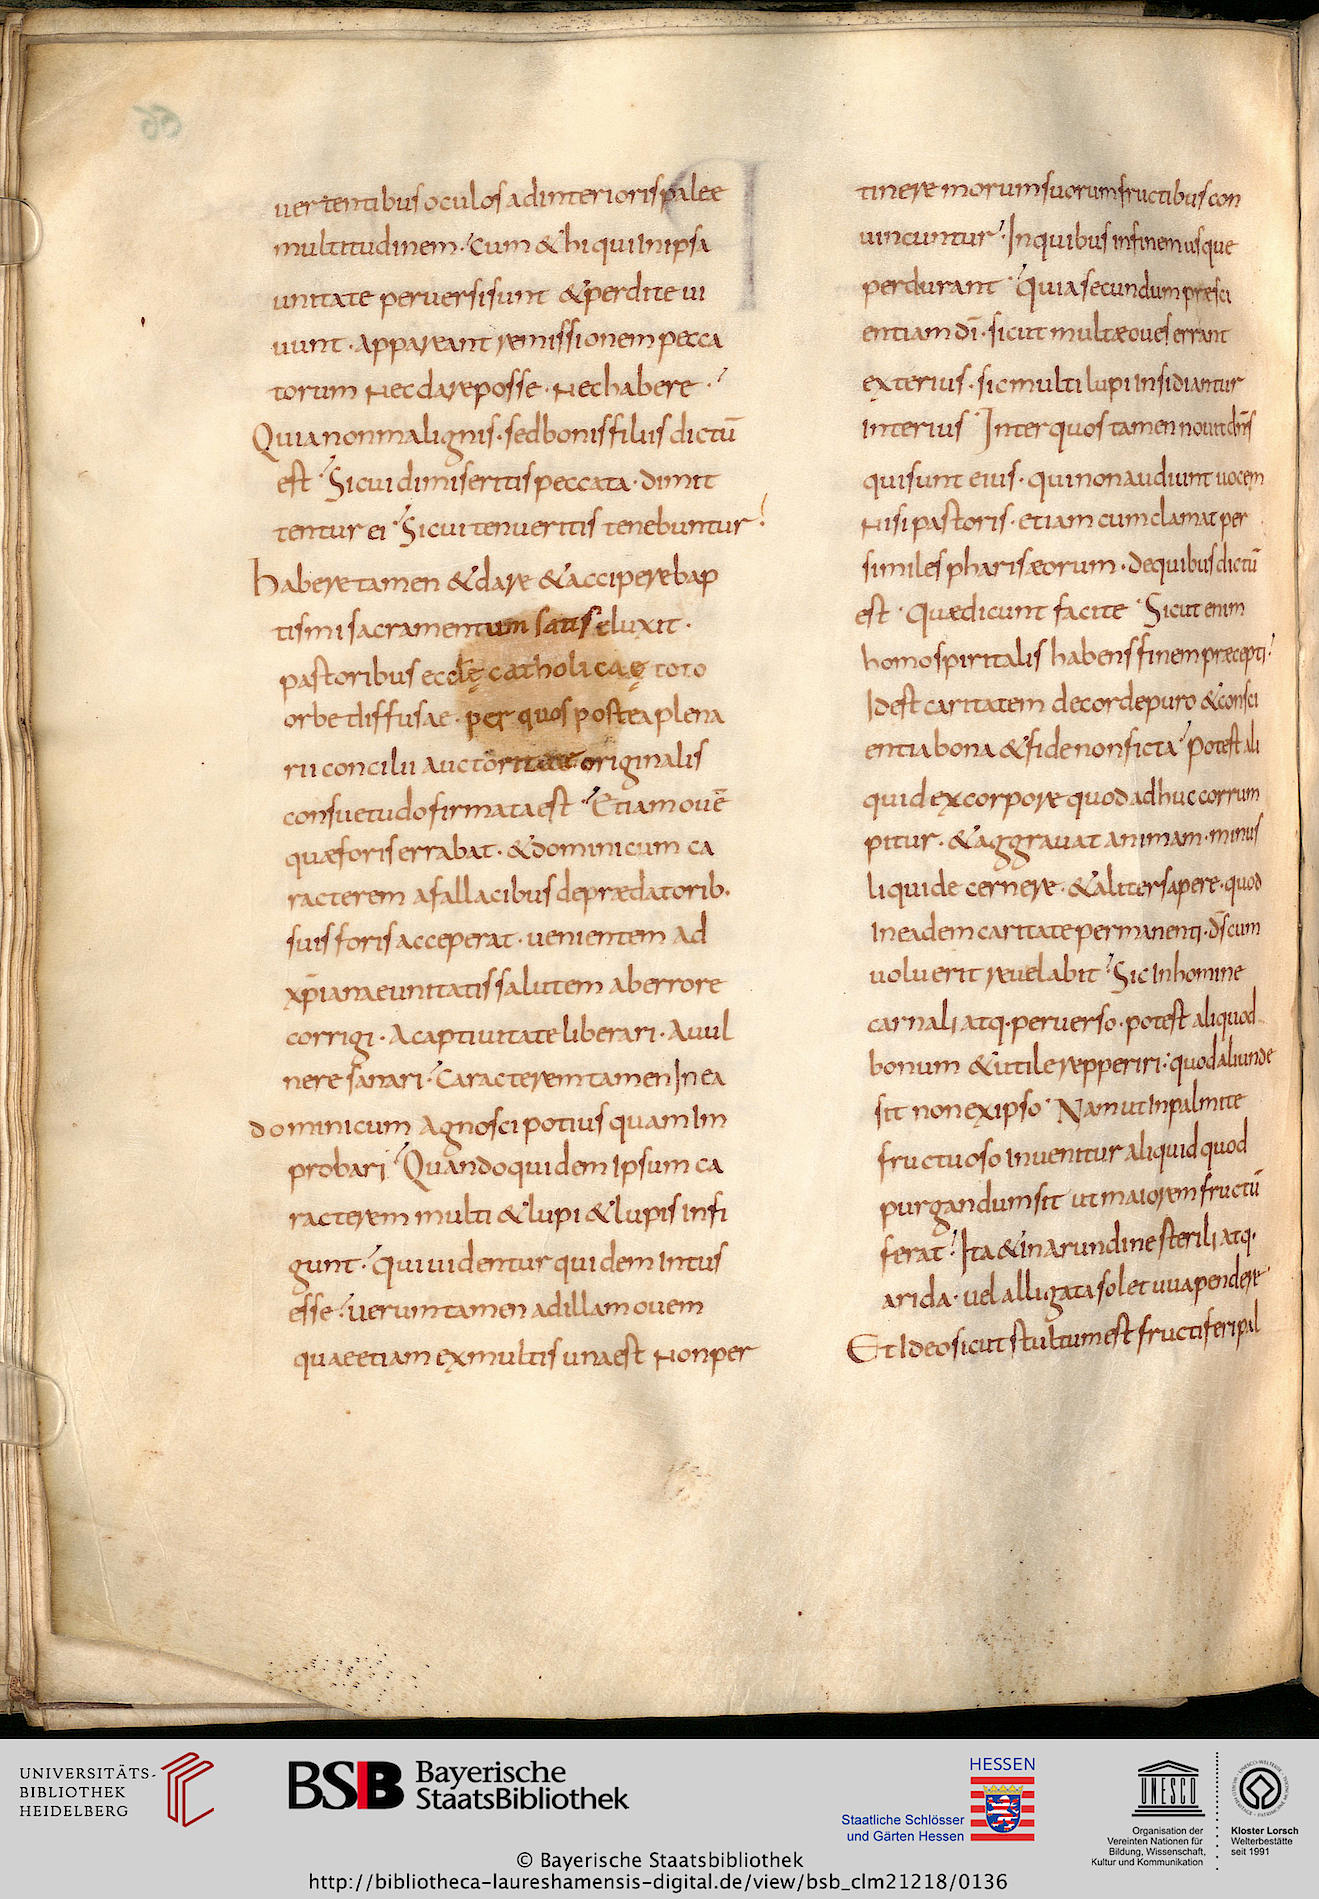 uertentibus oculos ad interioris paleae
multitudinem. cum & hi qui in ipsa
unitate peruersi sunt & perdite ui
uunt. appareant remissionem pecca
torum nec dare posse. nec habere.
Quia non malignis. sed bonis filiis dictū
est Si cui dimiseritis peccata. dimit
tentur ei Si cui tenueritis tenebuntur
habere tamen & dare & accipere bap
tismi sacramentum satis eluxit.
pastoribus ecclę catholicaę toto
orbe diffusae. per quos postea plena
rii concilii auctoritate originalis
consuetudo firmata est Etiam ouē
quae foris errabat. & dominicum ca
racterem a fallacibus depraedatorib.
suis foris acceperat. uenientem ad
xp̄ianae unitatis salutem ab errore
corrigi. a captiuitate liberari. a uul
nere sanari. caracterem tamen In ea
dominicum agnosci potius quam im
probari Quandoquidem ipsum ca
racterem multi & lupi & lupis infi
gunt. qui uidentur quidem intus
esse uerumtamen ad illam ouem
quae etiam ex multis una est non per
tinere morum suorum fructibus con
uincuntur. In quibus in finem usque
perdurant Quia secundum praesci
entiam dī. sicut multae oues errant
exterius. sic multi lupi insidiantur
interius Inter quos tamen nouit dn̄s
qui sunt eius. qui non audiunt uocem
nisi pastoris. etiam cum clamat per
similes pharisaeorum. de quibus dictū
est. Quae dicunt facite Sicut enim
homo spiritalis habens finem praecepti
Id est caritatem de corde puro & consci
entia bona & fide non ficta Potest ali
quid ex corpore quod adhuc corrum
pitur. & aggrauat animam. minus
liquide cernere. & aliter sapere. quod
in eadem caritate permanenti. d̄s cum
uoluerit reuelabit Sic in homine
carnali atq. peruerso. potest aliquod
bonum & utile repperiri. quod aliunde
sit non ex ipso Nam ut in palmite
fructuoso inuenitur aliquid quod
purgandum sit ut maiorem fructū
ferat Ita & in arundine sterili atq.
arida. uel alligata solet uua pendere
Et Ideo sicut stultum est fructiferi pal
UNIVERSITÄTS-
BIBLIOTHEK
HEIDELBERG
BSB Bayerische
StaatsBibliothek
HESSEN
Staatliche Schlösser
und Gärten Hessen
UNESCO
Organisation der
Vereinten Nationen für
Bildung, Wissenschaft,
Kultur und Kommunikation
Kloster Lorsch
Welterbestätte
seit 1991
© Bayerische Staatsbibliothek
http://bibliotheca-laureshamensis-digital.de/view/bsb_clm21218/0136